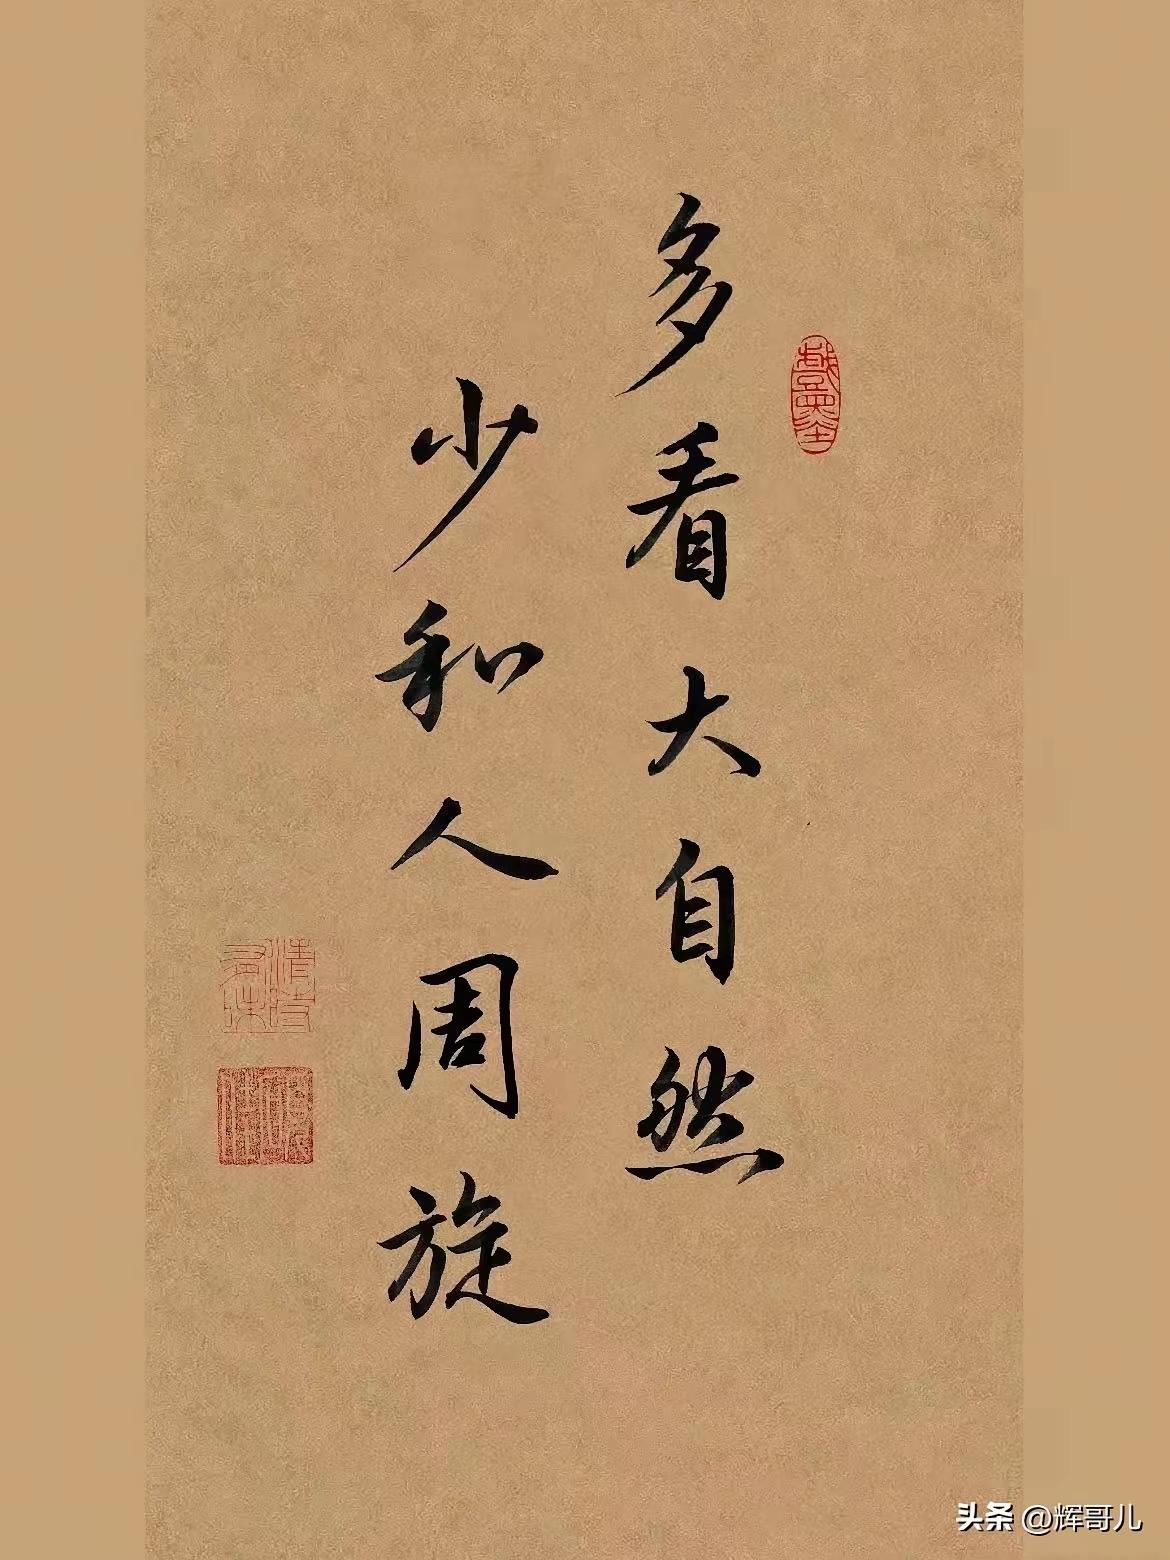 多看大自然
少和人周旋
头条 @辉哥儿